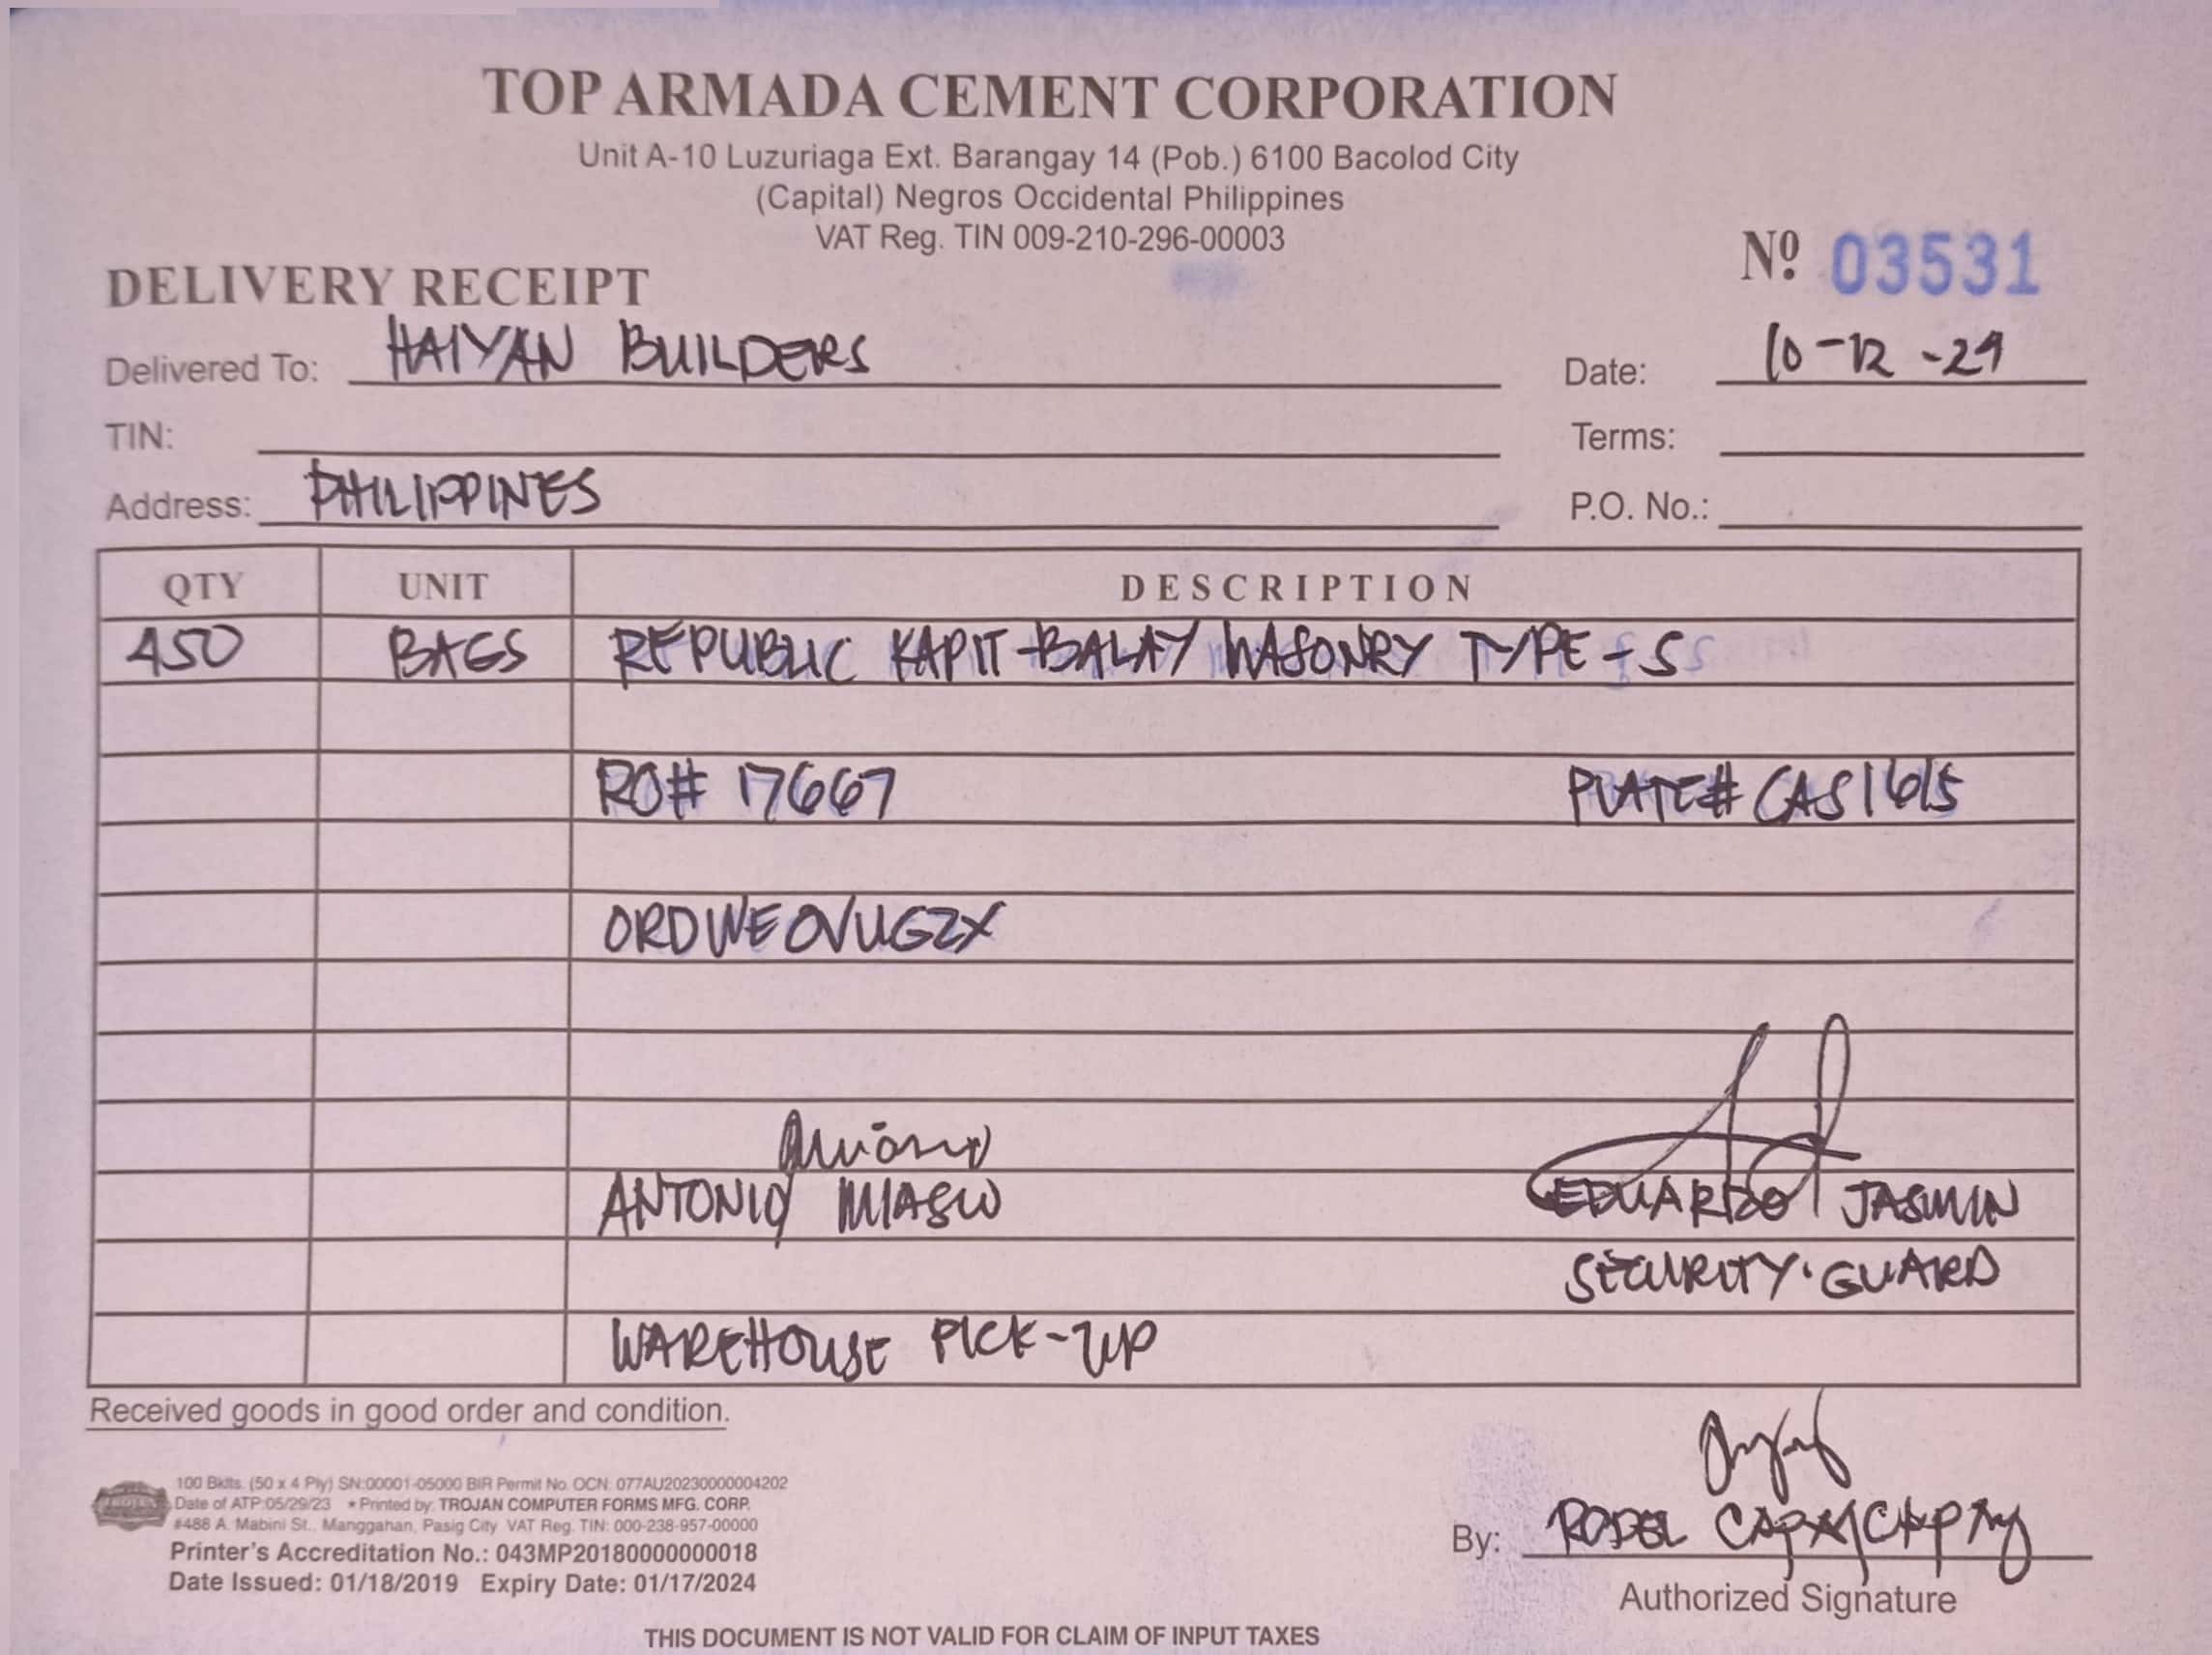 TOP ARMADA CEMENT CORPORATION
Unit A-10 Luzuriaga Ext. Barangay 14 (Pob.) 6100 Bacolod City
(Capital) Negros Occidental Philippines
VAT Reg. TIN 009-210-296-00003
Nº 03531
DELIVERY RECEIPT
Delivered To: HAIYAN BUILDERS Date: 10-12-24
TIN: Terms:
Address: PHILIPPINES P.O. No.:
QTY UNIT DESCRIPTION
450 BAGS REPUBLIC KAPIT-BALAY MASONRY TYPE-S
RO# 17667 PLATE# CAS1615
ORDWEOVUGZX
ANTONIO EDUARDO JASMIN
SECURITY GUARD
WAREHOUSE PICK-UP
Received goods in good order and condition.
100 Bklts. (50 x 4 Ply) SN:00001-05000 BIR Permit No. OCN: 077AU20230000004202
Date of ATP:05/29/23 * Printed by: TROJAN COMPUTER FORMS MFG. CORP.
#486 A. Mabini St., Manggahan, Pasig City VAT Reg. TIN: 000-238-957-00000
Printer's Accreditation No.: 043MP20180000000018
Date Issued: 01/18/2019 Expiry Date: 01/17/2024
By: RODEL
Authorized Signature
THIS DOCUMENT IS NOT VALID FOR CLAIM OF INPUT TAXES